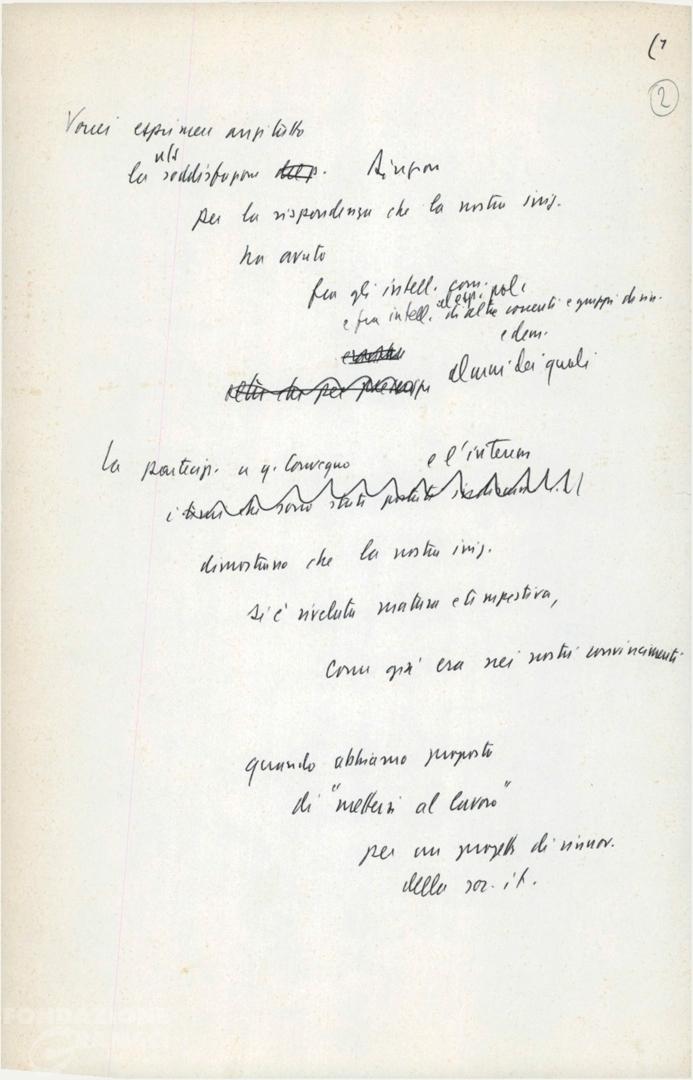 (7
2
Vorrei esprimere anzitutto
la soddisfazione della p. Direzion
per la rispondenza che la nostra iniz.
ha avuto
fra gli intell. com.
e fra intell. di altre correnti e gruppi
e dem.
alcuni dei quali
La partecip. a q. Convegno e l'interesse
i temi che sono stati
dimostrano che la nostra iniz.
si è rivelata matura e tempestiva,
come già era nei nostri convincimenti
quando abbiamo proposto
di "mettersi al lavoro"
per un progetto di rinnov.
della soc. it.
FONDAZIONE
GRAMSCI